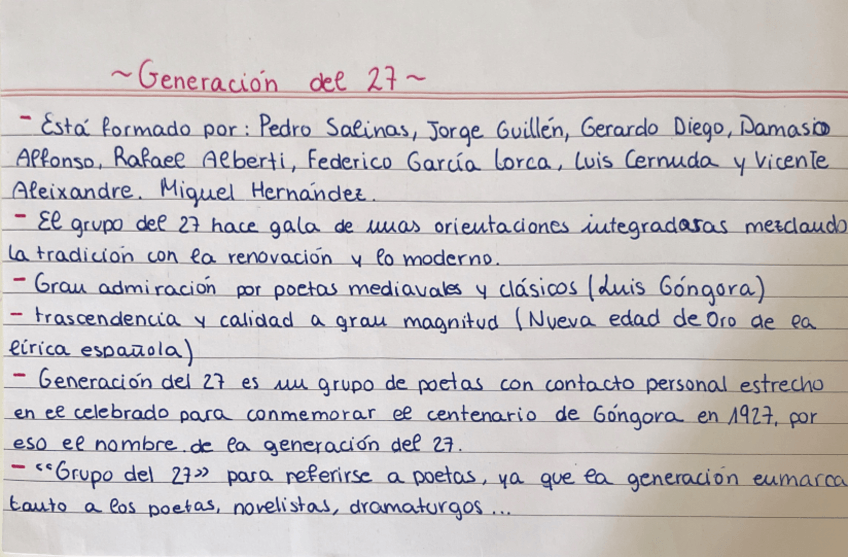 ~Generación del 27~
- Está formado por: Pedro Salinas, Jorge Guillén, Gerardo Diego, Damasio
Alfonso, Rafael Alberti, Federico García Lorca, Luis Cernuda y Vicente
Aleixandre. Miguel Hernández.
- El grupo del 27 hace gala de unas orientaciones integradaras mezclando
la tradición con la renovación y lo moderno.
- Gran admiración por poetas mediavales y clásicos (Luis Góngora)
- trascendencia y calidad a gran magnitud (Nueva edad de Oro de la
lírica española)
- Generación del 27 es un grupo de poetas con contacto personal estrecho
en el celebrado para conmemorar el centenario de Góngora en 1927, por
eso el nombre de la generación del 27.
- "Grupo del 27» para referirse a poetas, ya que la generación enmarca
tanto a los poetas, novelistas, dramaturgos...